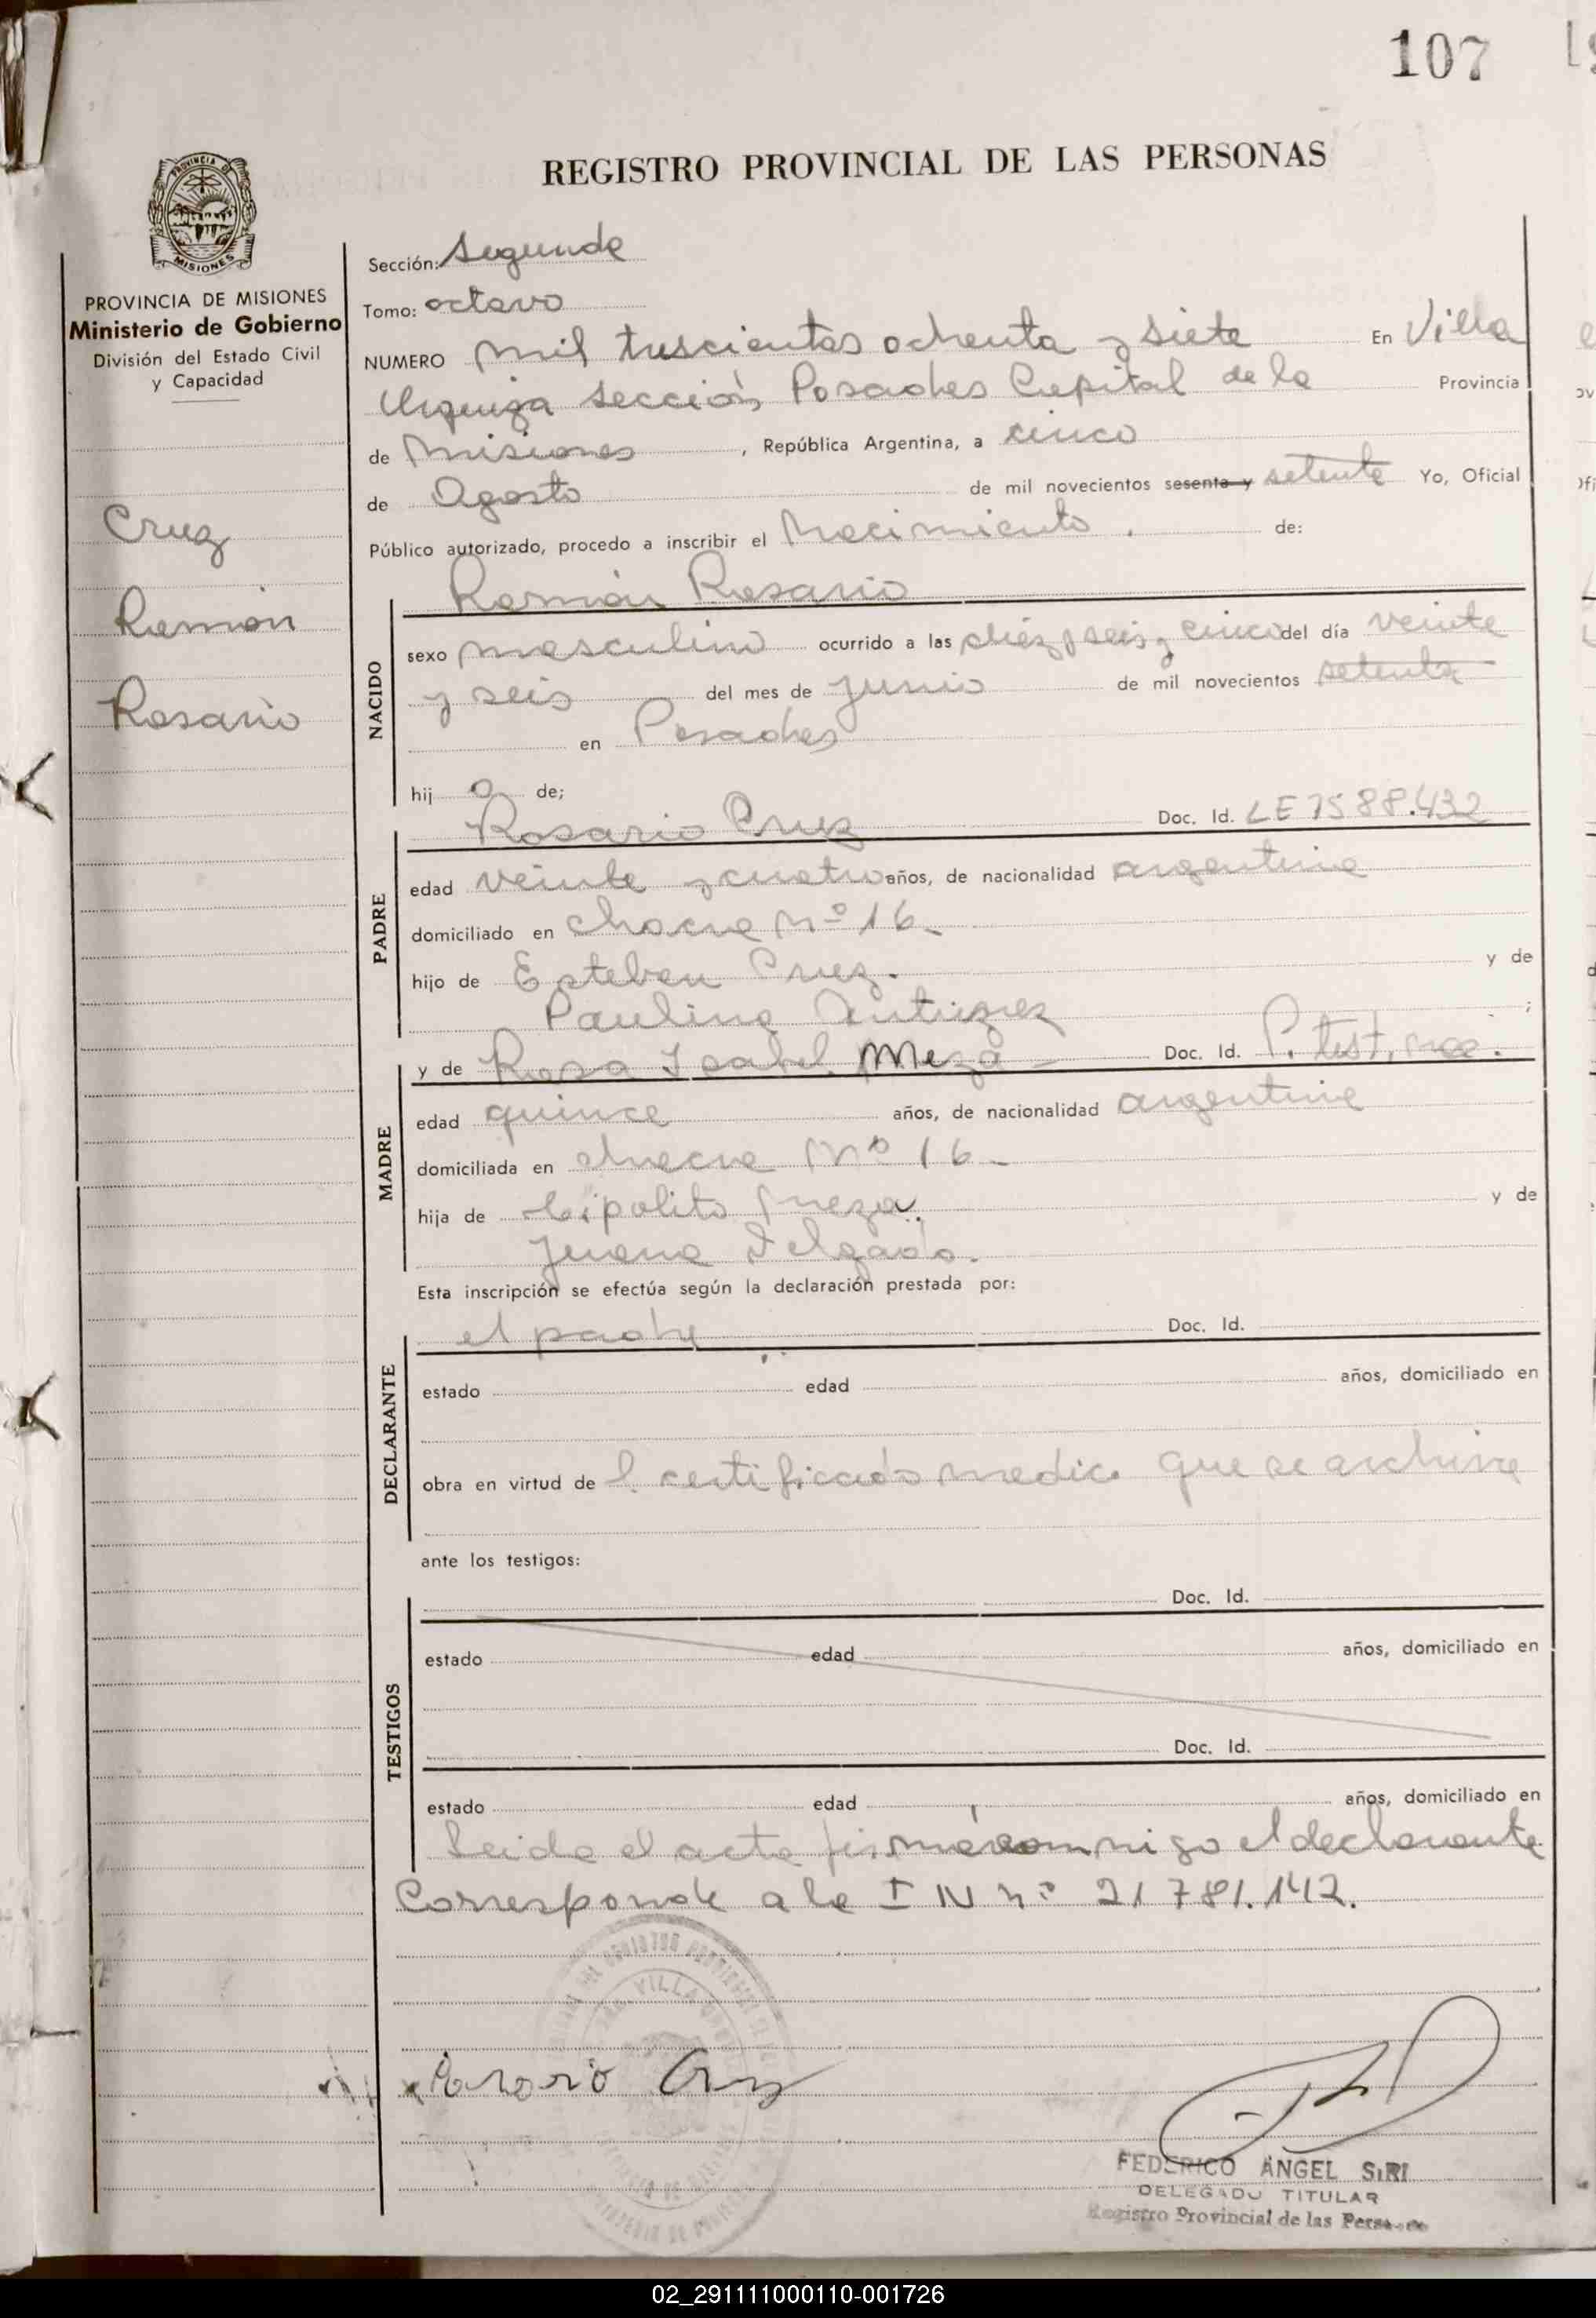 107
REGISTRO PROVINCIAL DE LAS PERSONAS
PROVINCIA DE MISIONES
Ministerio de Gobierno
División del Estado Civil
y Capacidad
Cruz
Ramón
Rosario
Sección: Segunda
Tomo: octavo
NUMERO Mil trescientos ochenta y siete En Villa
Urquiza Sección Posadas Capital de la Provincia
de Misiones, República Argentina, a cinco
de Agosto de mil novecientos sesenta y setenta Yo, Oficial
Público autorizado, procedo a inscribir el Nacimiento. de:
Ramón Rosario
NACIDO
sexo masculino ocurrido a las diez y seis y cinco del día veinte
y seis del mes de Junio de mil novecientos setenta
en Posadas
hij o de;
Rosario Cruz Doc. Id. LE 7588.432
PADRE
edad veinte y cuatro años, de nacionalidad argentina
domiciliado en chacra Nº 16
hijo de Esteban Cruz. y de
Paulina ;
y de Rosa Isabel Meza Doc. Id. P. test. nac.
MADRE
edad quince años, de nacionalidad argentina
domiciliada en chacra Nº 16
hija de Hipolito Meza. y de
Juana Delgado.
Esta inscripción se efectúa según la declaración prestada por:
el padre Doc. Id.
DECLARANTE
estado edad años, domiciliado en
obra en virtud de l certificado medico que se archiva
ante los testigos:
Doc. Id.
TESTIGOS
estado edad años, domiciliado en
Doc. Id.
estado edad años, domiciliado en
Leida el acta firma conmigo el declarante
Corresponde a la I N nº 21 781.142.
VILLA
Rosario Cruz
FEDERICO ANGEL SIRI
DELEGADO TITULAR
Registro Provincial de las Personas
02_291111000110-001726